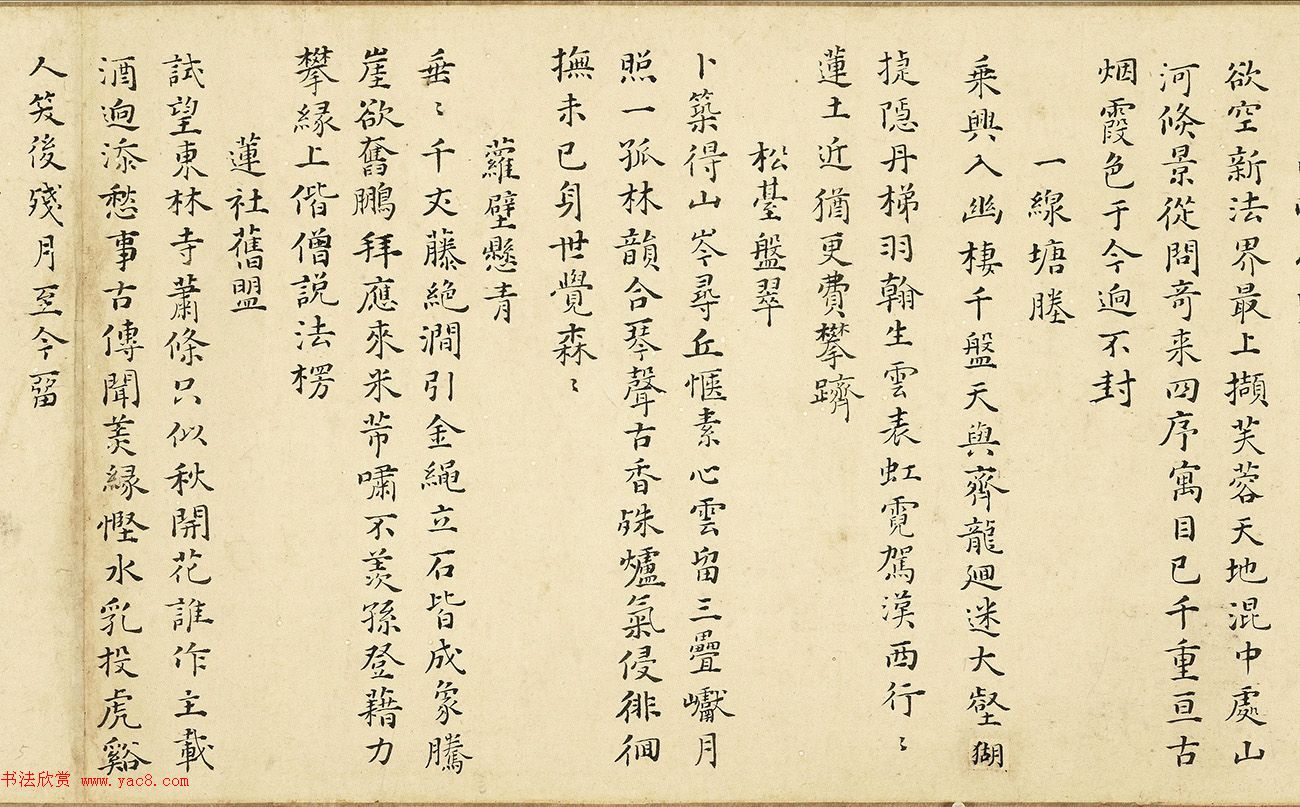 欲空新法界最上擷芙蓉天地混中處山
河倏景從問奇来四序寓目已千重亘古
烟霞色于今迥不封
一線塘塍
乘興入幽棲千盤天與齊龍廻迷大壑猢
㨗隱丹梯羽翰生雲表虹霓駕漢西行〻
蓮土近猶更費攀躋
松臺盤翠
卜築得山岑尋丘愜素心雲留三疊巘月
照一孤林韻合琴聲古香殊爐氣侵徘徊
撫未已身世覺森〻
蘿壁懸青
垂〻千丈藤絶澗引金繩立石皆成象騰
崖欲奮鵬拜應來米芾嘯不羨孫登藉力
攀縁上偕僧説法楞
蓮社舊盟
試望東林寺蕭條只似秋開花誰作主載
酒迥添愁事古傳聞羨縁慳水乳投虎谿
人笑後殘月至今留
书法欣赏 www.yac8.com